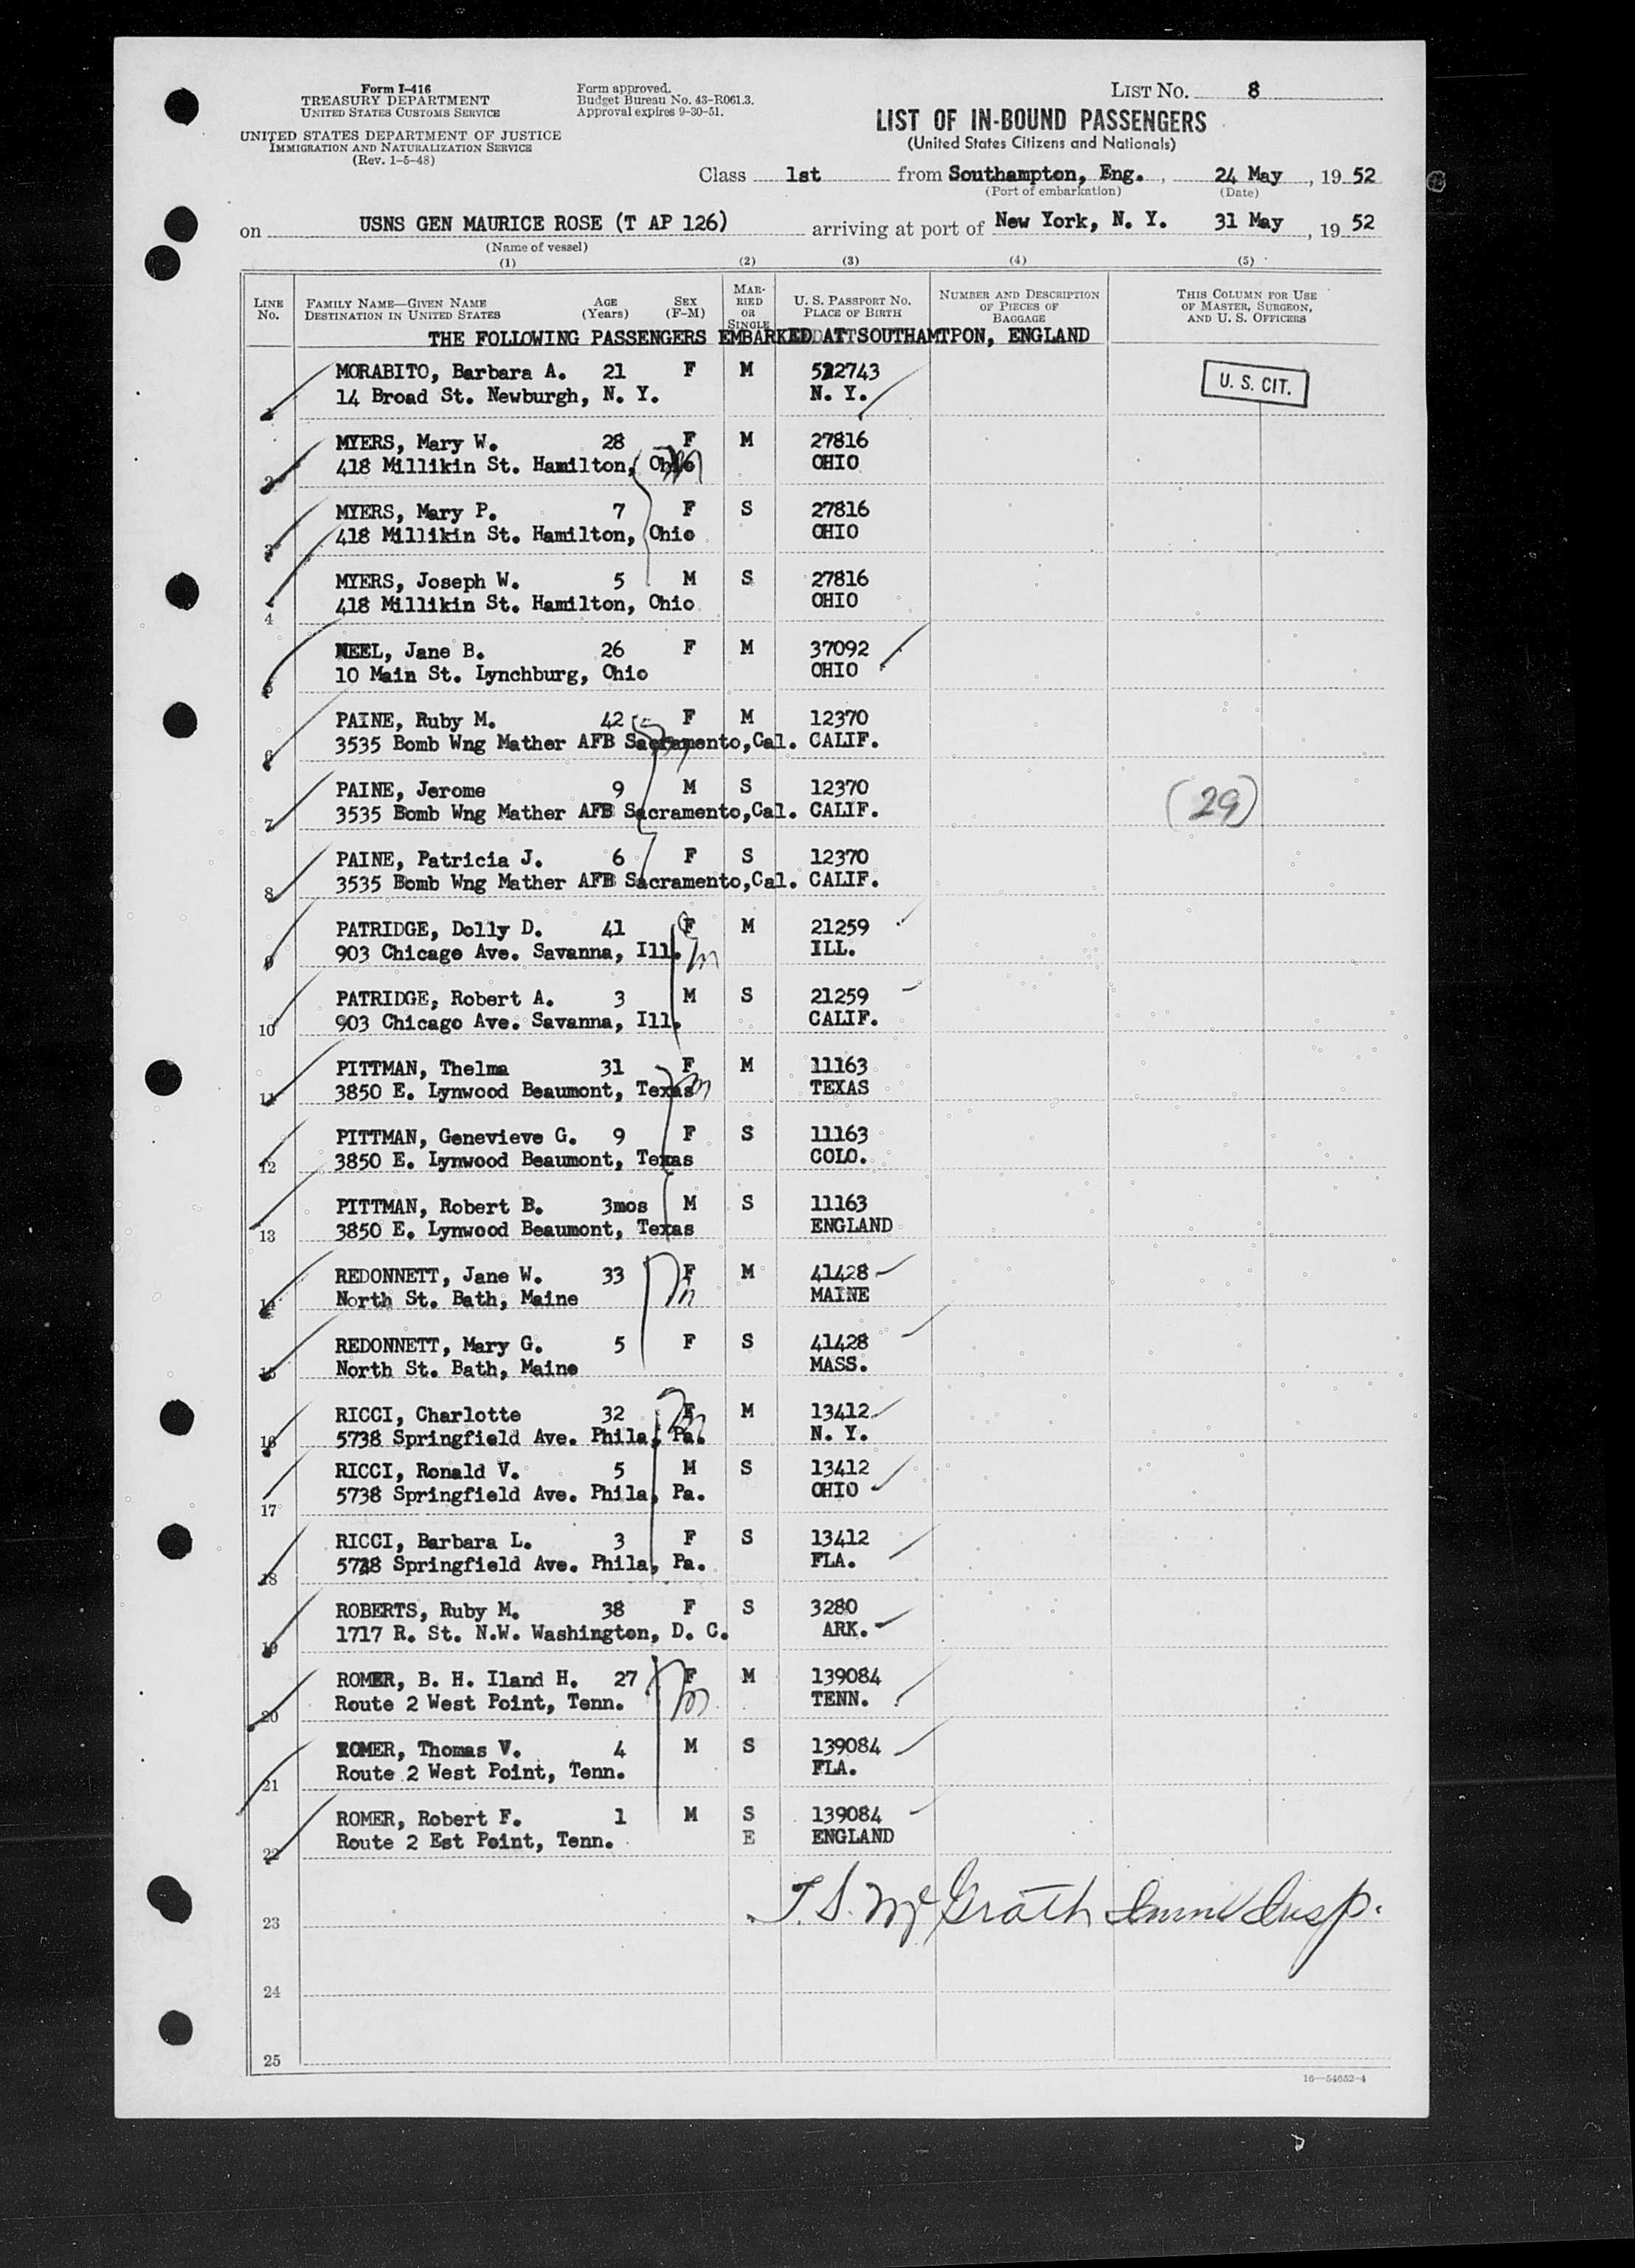 Form I-416
TREASURY DEPARTMENT
UNITED STATES CUSTOMS SERVICE
UNITED STATES DEPARTMENT OF JUSTICE
IMMIGRATION AND NATURALIZATION SERVICE
(Rev. 1-5-48)
Form approved.
Budget Bureau No. 43-R061.3.
Approval expires 9-30-51.
LIST No. 8
LIST OF IN-BOUND PASSENGERS
(United States Citizens and Nationals)
Class 1st from Southampton, Eng., 24 May, 19 52
(Port of embarkation) (Date)
on USNS GEN MAURICE ROSE (T AP 126) arriving at port of New York, N. Y. 31 May, 19 52
(Name of vessel)
(1) (2) (3) (4) (5)
LINE No. FAMILY NAME—GIVEN NAME DESTINATION IN UNITED STATES AGE (Years) SEX (F-M) MARRIED OR SINGLE U. S. PASSPORT No. PLACE OF BIRTH NUMBER AND DESCRIPTION OF PIECES OF BAGGAGE THIS COLUMN FOR USE OF MASTER, SURGEON, AND U. S. OFFICERS
THE FOLLOWING PASSENGERS EMBARKED AT SOUTHAMTPON, ENGLAND
MORABITO, Barbara A. 21 F M 522743 U. S. CIT.
1 14 Broad St. Newburgh, N. Y. N. Y.
MYERS, Mary W. 28 F M 27816
2 418 Millikin St. Hamilton, Ohio OHIO
MYERS, Mary P. 7 F S 27816
3 418 Millikin St. Hamilton, Ohio OHIO
MYERS, Joseph W. 5 M S 27816
4 418 Millikin St. Hamilton, Ohio OHIO
NEEL, Jane B. 26 F M 37092
5 10 Main St. Lynchburg, Ohio OHIO
PAINE, Ruby M. 42 F M 12370
6 3535 Bomb Wng Mather AFB Sacramento,Cal. CALIF.
PAINE, Jerome 9 M S 12370 (29)
7 3535 Bomb Wng Mather AFB Sacramento,Cal. CALIF.
PAINE, Patricia J. 6 F S 12370
8 3535 Bomb Wng Mather AFB Sacramento,Cal. CALIF.
PATRIDGE, Dolly D. 41 F M 21259
9 903 Chicago Ave. Savanna, Ill. ILL.
PATRIDGE, Robert A. 3 M S 21259
10 903 Chicago Ave. Savanna, Ill. CALIF.
PITTMAN, Thelma 31 F M 11163
11 3850 E. Lynwood Beaumont, Texas TEXAS
PITTMAN, Genevieve G. 9 F S 11163
12 3850 E. Lynwood Beaumont, Texas COLO.
PITTMAN, Robert B. 3mos M S 11163
13 3850 E. Lynwood Beaumont, Texas ENGLAND
REDONNETT, Jane W. 33 F M 41428
14 North St. Bath, Maine MAINE
REDONNETT, Mary G. 5 F S 41428
15 North St. Bath, Maine MASS.
RICCI, Charlotte 32 F M 13412
16 5738 Springfield Ave. Phila, Pa. N. Y.
RICCI, Ronald V. 5 M S 13412
17 5738 Springfield Ave. Phila, Pa. OHIO
RICCI, Barbara L. 3 F S 13412
18 5738 Springfield Ave. Phila, Pa. FLA.
ROBERTS, Ruby M. 38 F S 3280
19 1717 R. St. N.W. Washington, D. C. ARK.
ROMER, B. H. Iland H. 27 F M 139084
20 Route 2 West Point, Tenn. TENN.
ROMER, Thomas V. 4 M S 139084
21 Route 2 West Point, Tenn. FLA.
ROMER, Robert F. 1 M S 139084
22 Route 2 Est Point, Tenn. E ENGLAND
23 T. S. McGrath Imm Insp.
24
25
16—54652-4